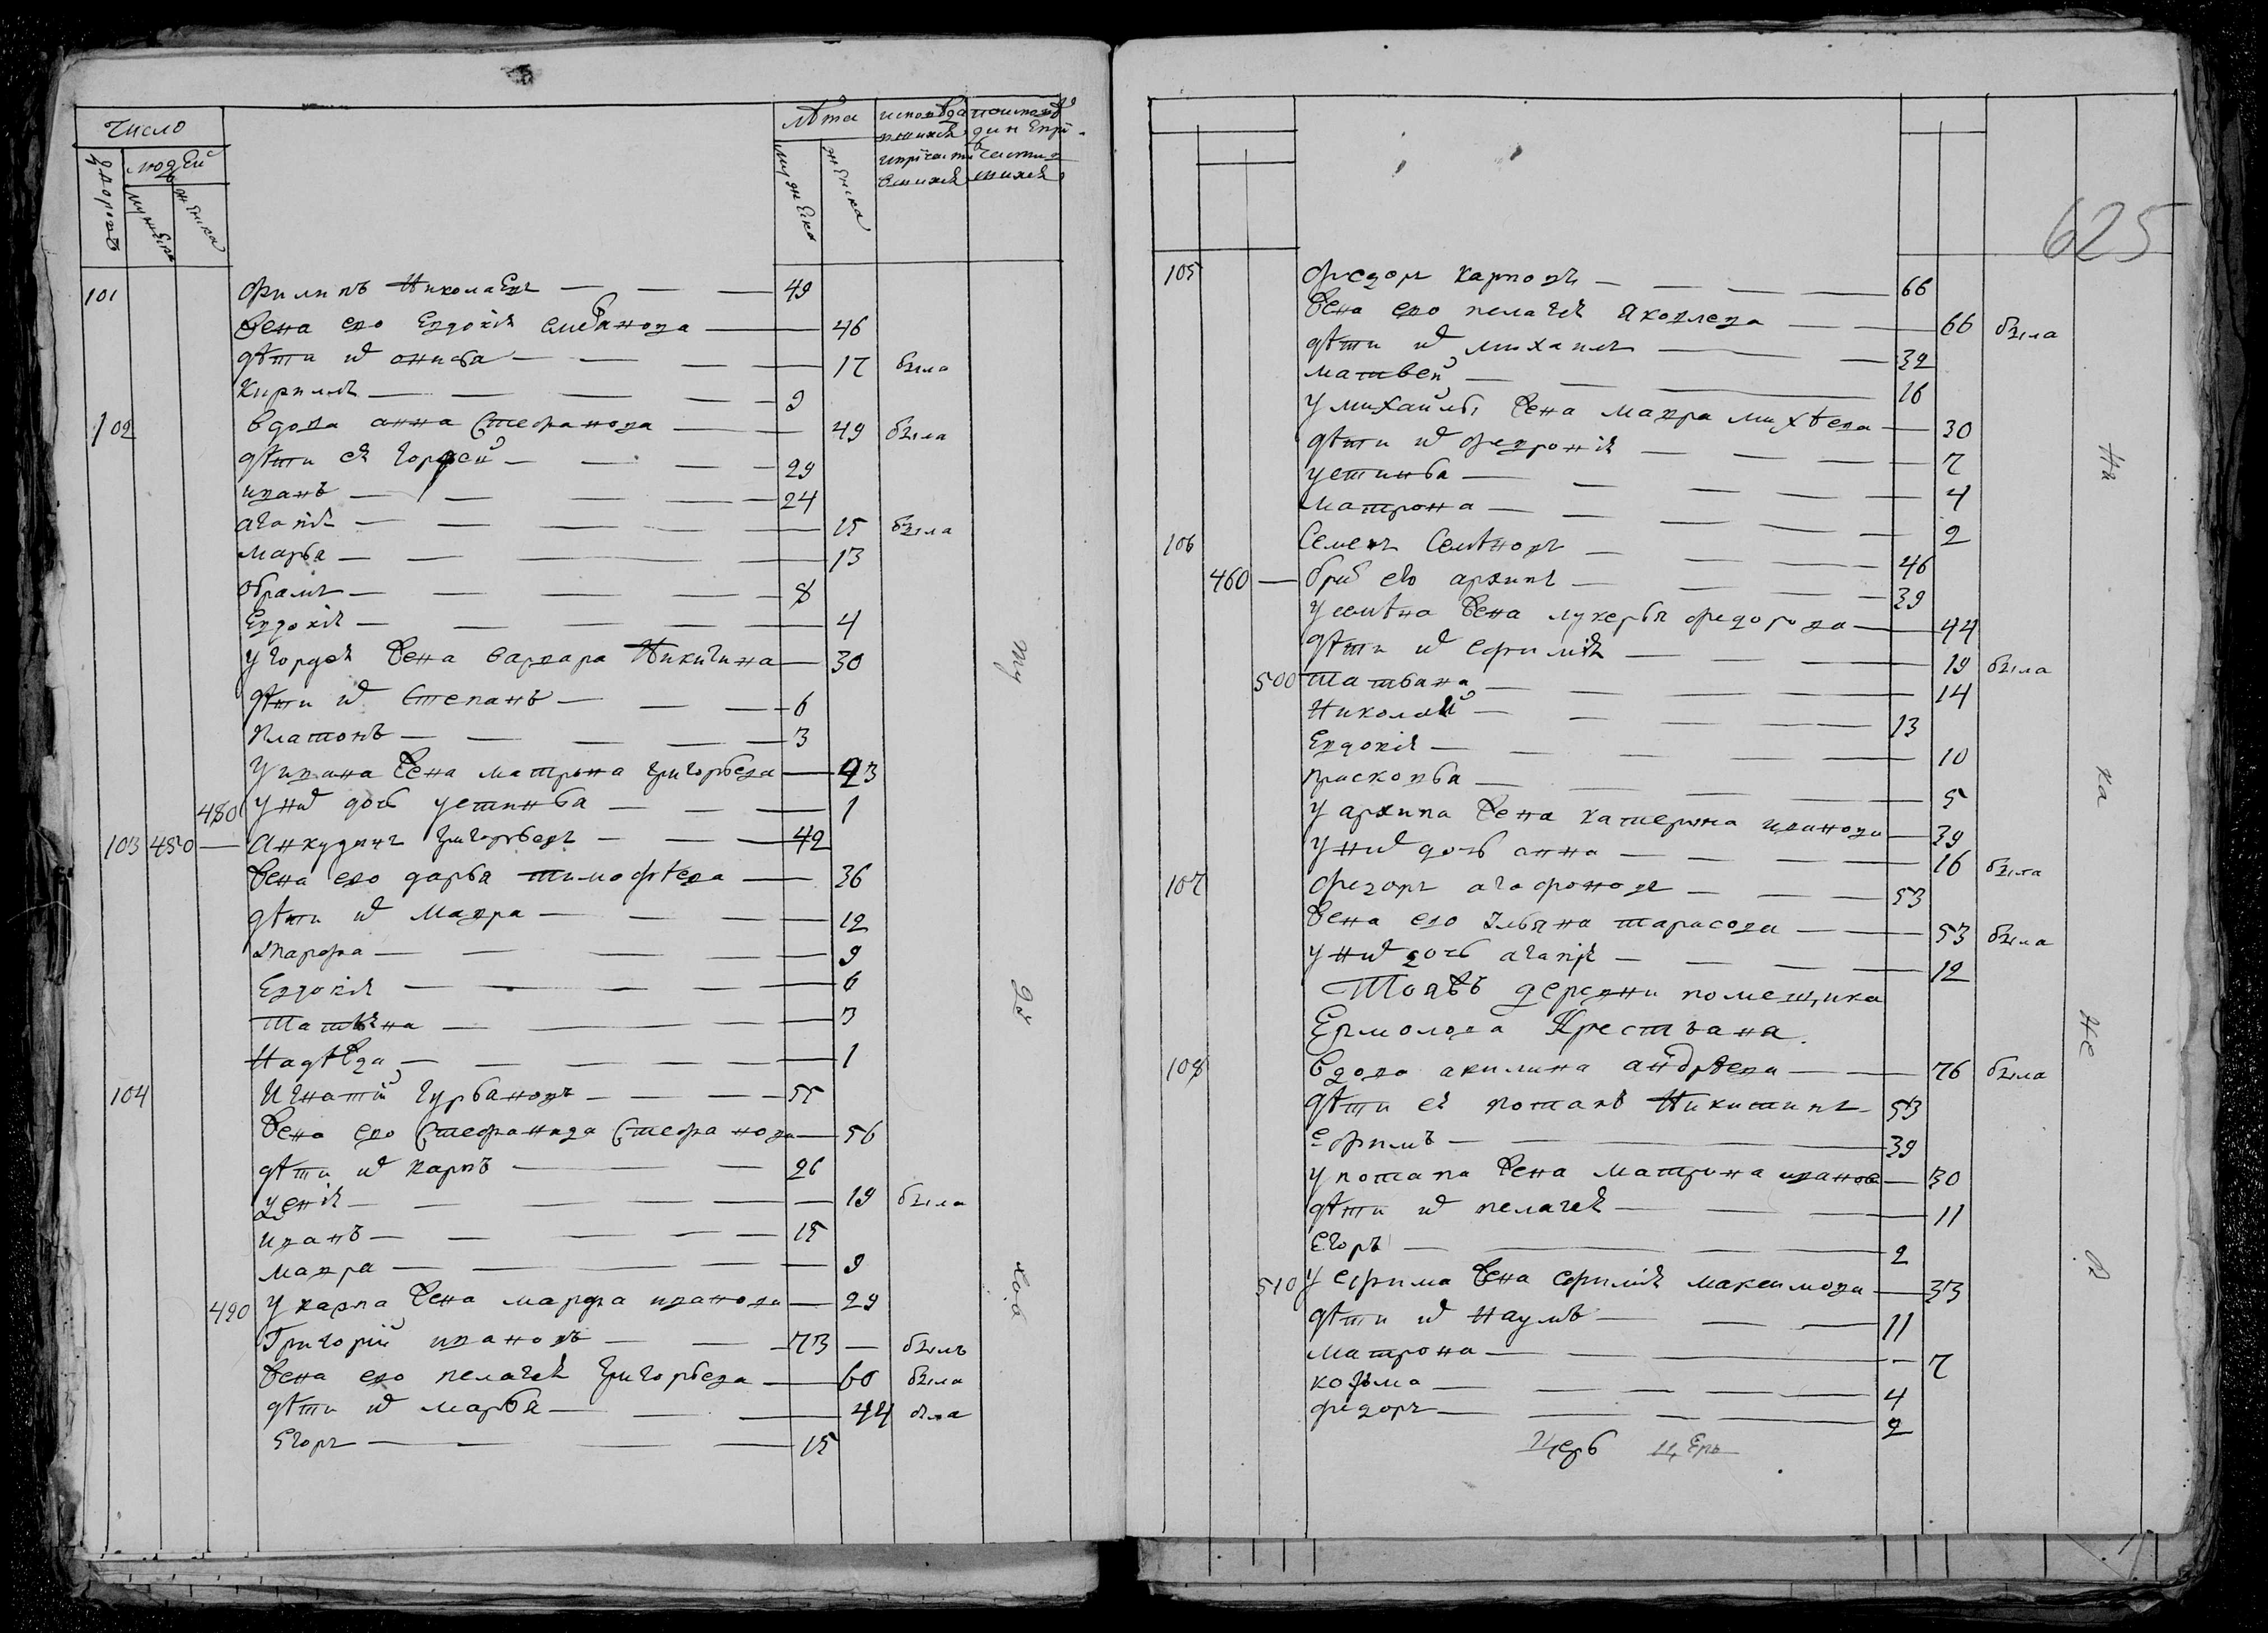 Число
Лѣта
исповѣда
дворовъ
людей
мужеска
женска
мужеска
женска
101 Филипъ Николаевъ 49
жена ево Евдокія 46
дѣти их онисья 17 была
Кирилъ 9
102 вдова анна Стефанова 49 была
дѣти ея гордей 29
иванъ 24
агапія 15 была
марья 13
Обрамъ 8
Евдокія 4
у гордея жена варвара Никитина 30
дѣти их Степанъ 6
Платонъ 3
у ивана жена матрона григорьева 23
480 у них дочь устинья 1
103 450 Анкудинъ григорьевъ 42
жена ево дарья тимофѣева 36
дѣти их Мавра 12
Марфа 9
Евдокія 6
татьяна 3
Надѣжда 1
104 Игнатій Гурьановъ 55
жена ево Стефанида Стефанова 56
дѣти их карпъ 26
19 была
иванъ 15
мавра 9
490 у карпа жена марфа иванова 29
Григорій ивановъ 73 былъ
жена ево пелагея григорьева 60 была
дѣти их марья 44 была
Егоръ 15
ту
625
105 Федоръ карповъ 66
жена ево пелагея яковлева 66 была
дѣти их михаилъ 32
матвей 16
у михайлы жена мавра михѣева 30
дѣти их февронія 7
устинья 4
матрона 2
106 Семенъ Семѣновъ 46
460 братъ ево архипъ 39
у семѣна жена лукерья федорова 44
дѣти их ефимія 19 была
500 татьяна 14
Николай 13
Евдокія 10
прасковья 5
у архипа жена катерина иванова 39
у них дочь анна 16 была
107 Федоръ агафоновъ 53
жена ево Ульяна тарасова 53 была
у них дочь агапія 12
Тояжъ деревни помещика
Ермолова Крестьяна
108 Вдова акилина андрѣева 76 была
дѣти ея потапъ Никитинъ 53
ефимъ 39
у потапа жена матрина иванова 30
дѣти их пелагея 11
Егоръ 2
510 у ефима жена ефимія максимова 33
дѣти их наумъ 11
матрона 7
козьма 4
федоръ 2
Церь Церь
Ни
ка
не